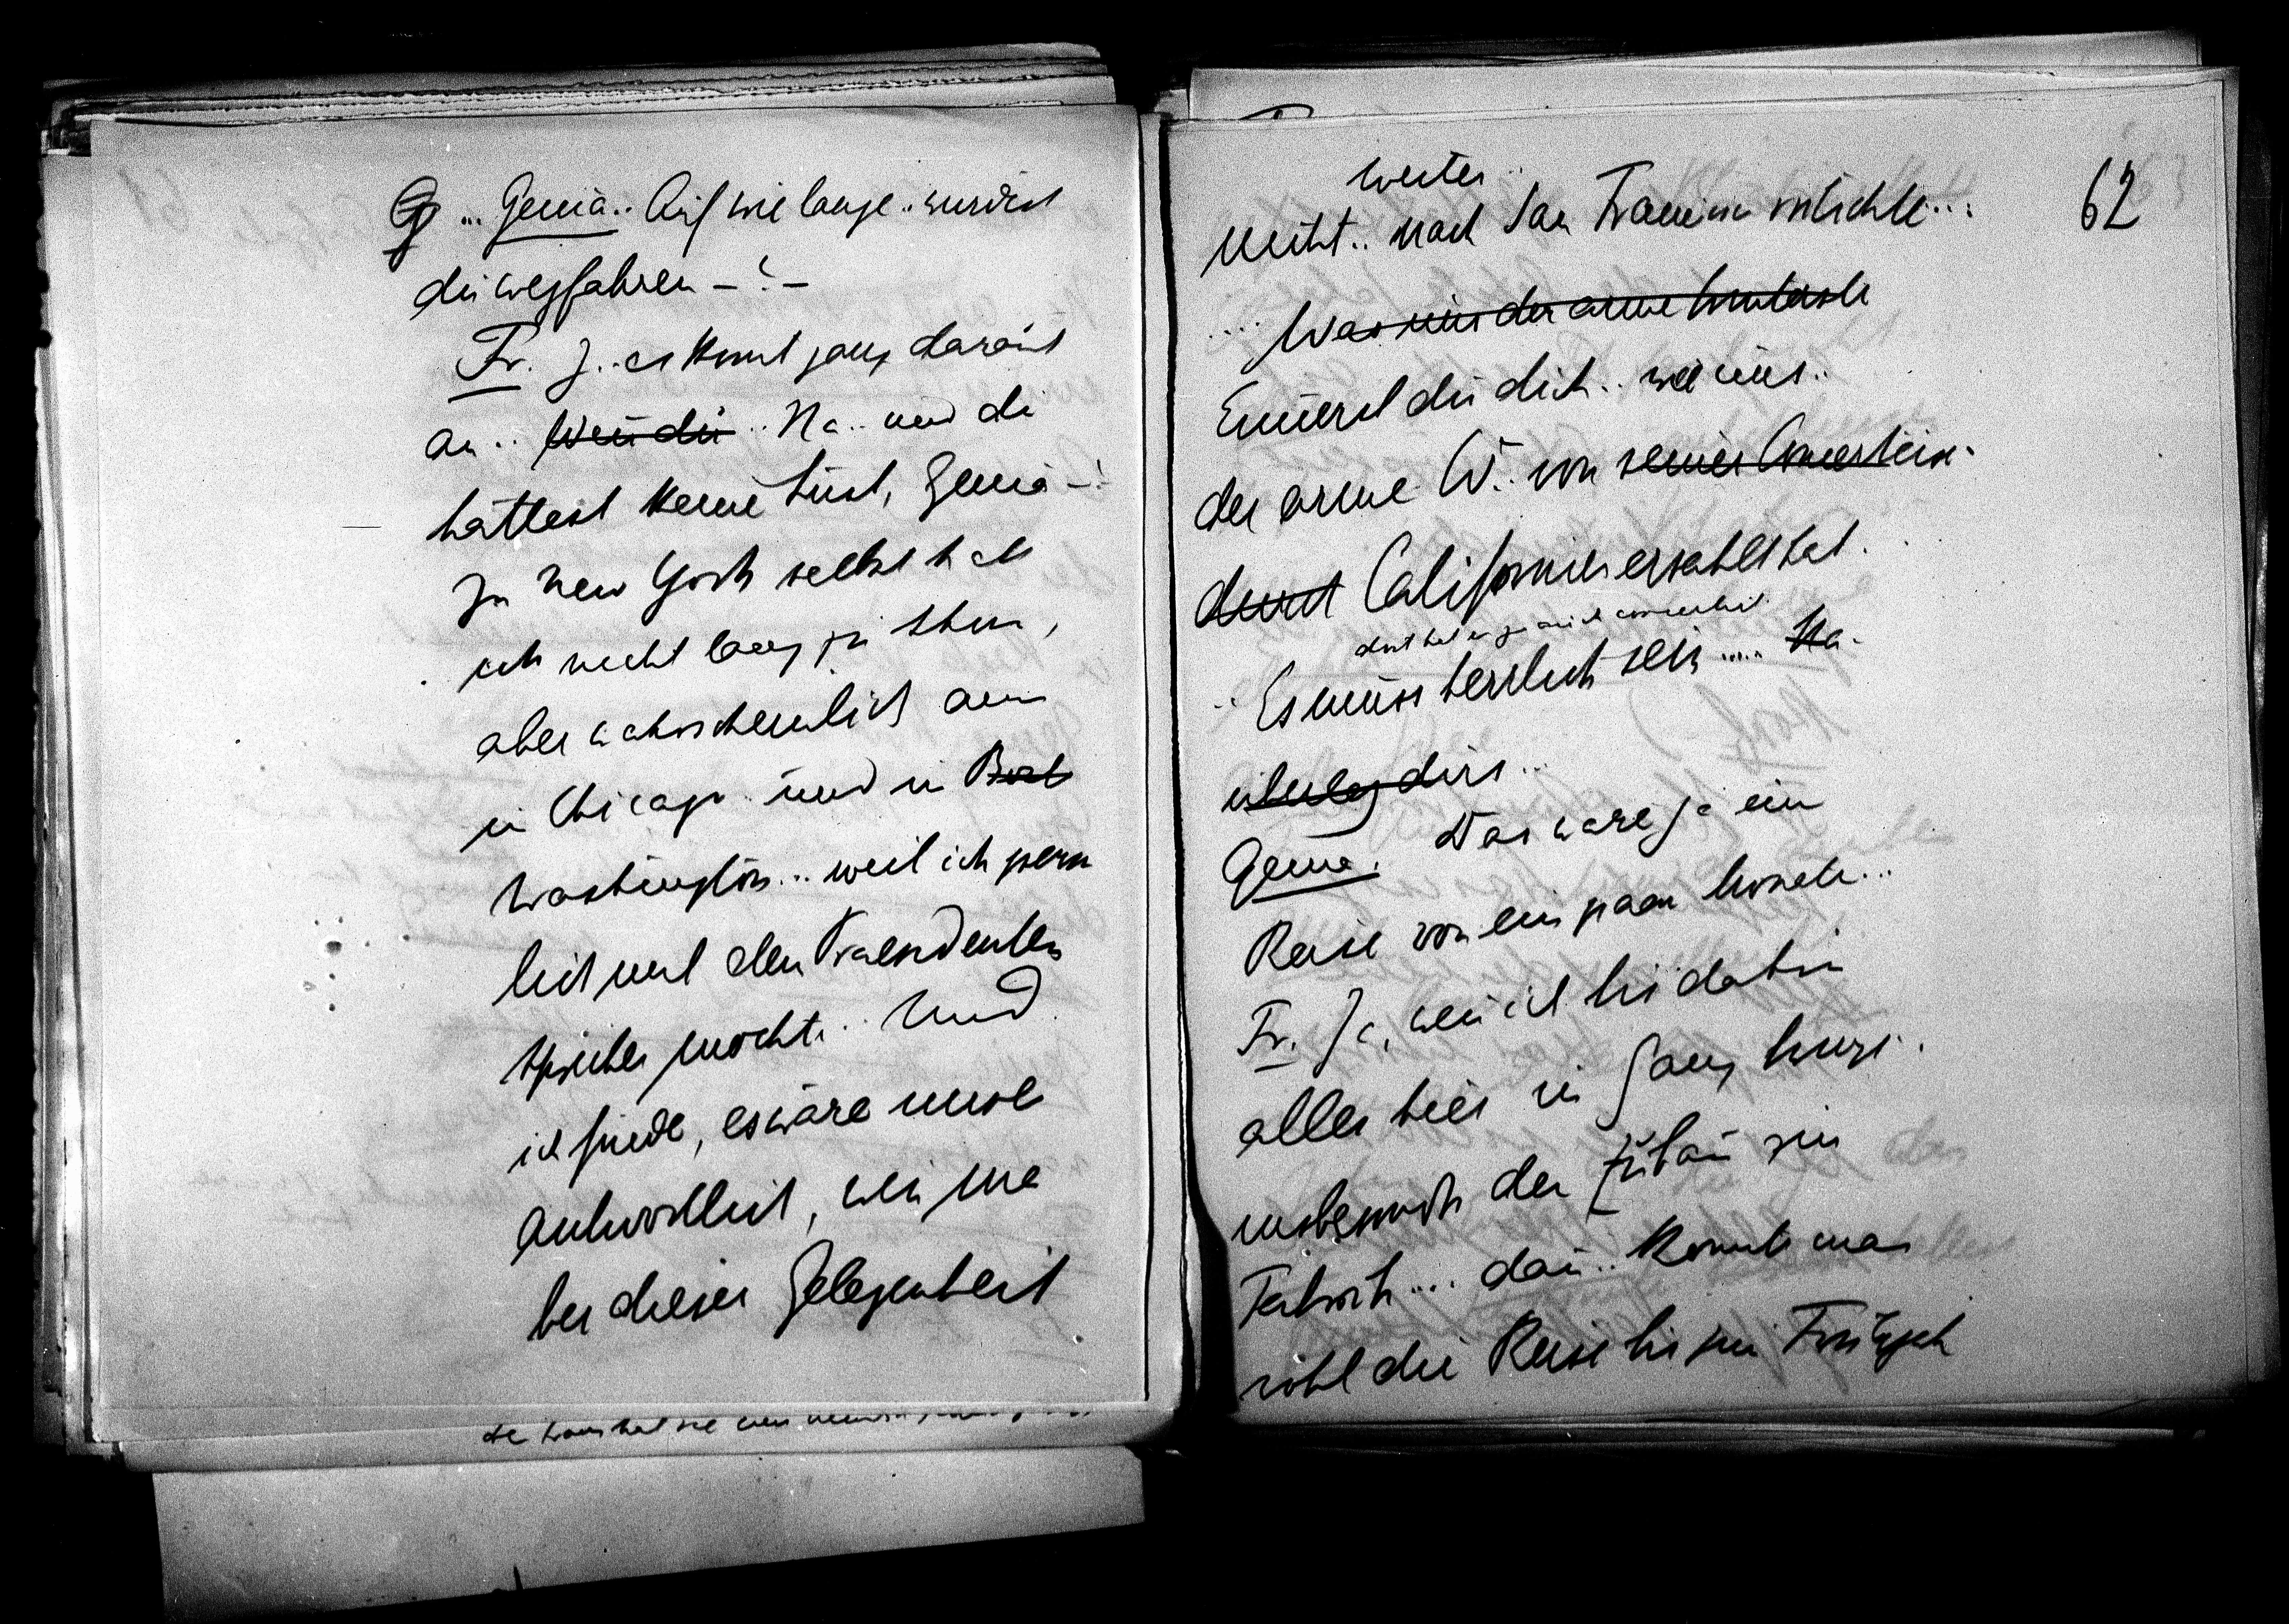 G ... Genia.. Auf wie lange.. würdest
du wegfahren – ? –
Fr. J.. es komt ganz darauf
an.. Wen du.. Na.. und du
hattest keine Lust, Genia – ?
In New York selbst hab
ich nicht lang zu thun,
aber wahrscheinlich auch
in Chicago und in Bost
Washington... weil ich gern
mit dem Praesidenten
sprechen möchte.. Und
ich finde, es wäre unver
antwortlich, wen man
bei dieser Gelegenheit
62
weiter..
nicht.. nach San Francisco möchte...
... Was uns der arme
Erinerst du dich.. wie uns..
der arme W. von seiner
dort Californien erzählt hat..
dort hat er ja auch
.. Es muss herrlich sein..... Na.
überleg dirs...
Genia. Das wäre ja eine
Reise von ein paar Monate...
Fr. Ja, wen ich bis dahin
alles hier in Gang bring.
insbesondre den Zubau zur
Fabrik... dan.. könnte man
wohl die Reise bis zum Frühjah